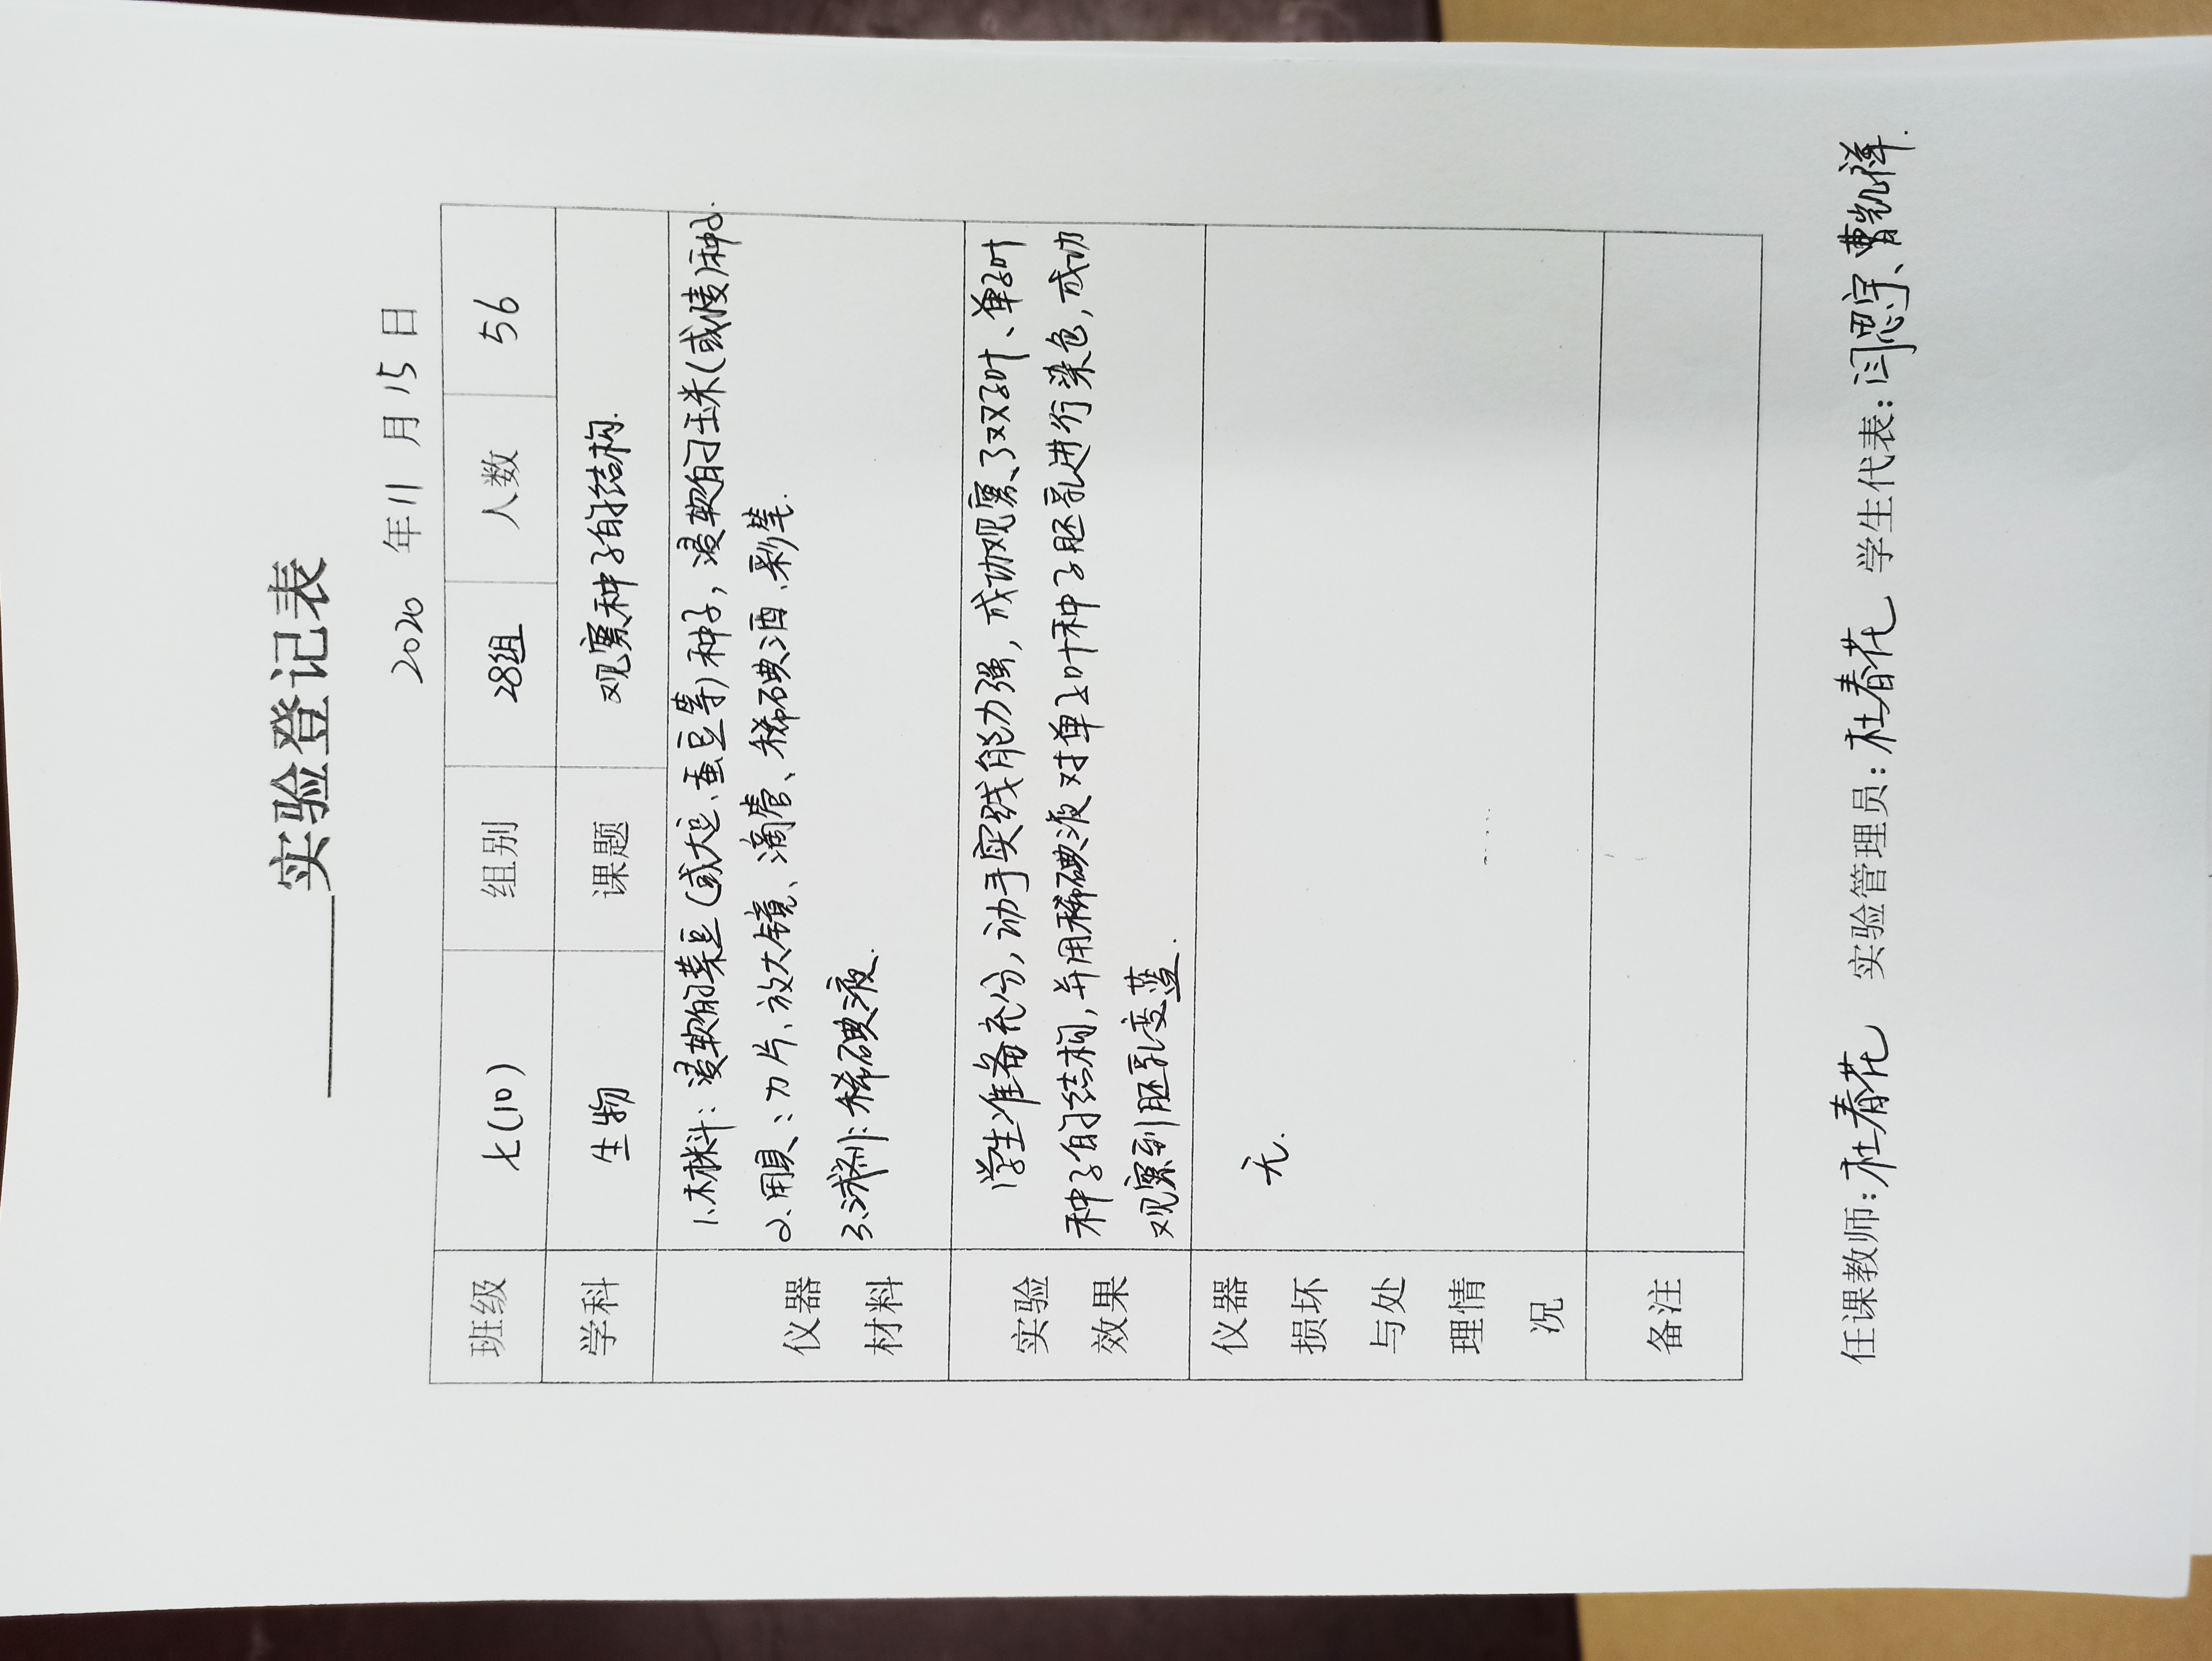 实验登记表
2020 年 11 月 15 日
班级 七(10) 组别 28组 人数 56
学科 生物 课题 观察种子的结构.
仪器
材料
1.材料: 浸软的菜豆(或大豆、蚕豆等)种子, 浸软的玉米(或 )种子.
2.用具: 刀片、放大镜、滴管、稀碘酒、彩笔.
3.试剂: 稀碘液.
实验
效果
学生准备充分, 动手实践能力强, 成功观察了双子叶、单子叶
种子的结构, 并用稀碘液对单子叶种子胚乳进行染色, 成功
观察到胚乳变蓝.
仪器
损坏
与处
理情
况
无.
备注
任课教师: 杜春花 实验管理员: 杜春花 学生代表: 闫思宇、曹凯祥.